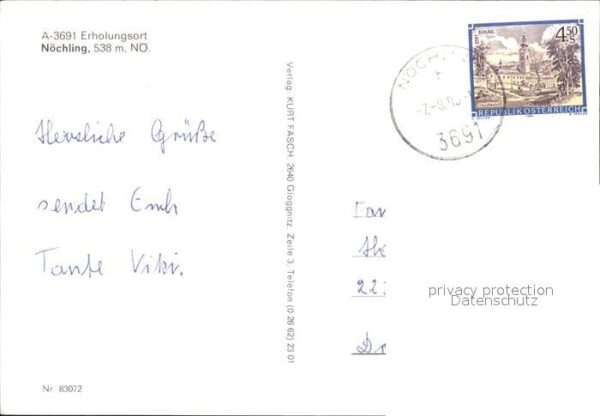 A-3691 Erholungsort
Nöchling, 538 m, NÖ.
Herzliche Grüße
sendet Euch
Tante Viki.
Nr 83072
Verlag: KURT FASCH 2640 Gloggnitz Zeile 3, Telefon (0 26 62) 23 01
4.50
S
REPUBLIK ÖSTERREICH
3691
22
privacy protection
Datenschutz